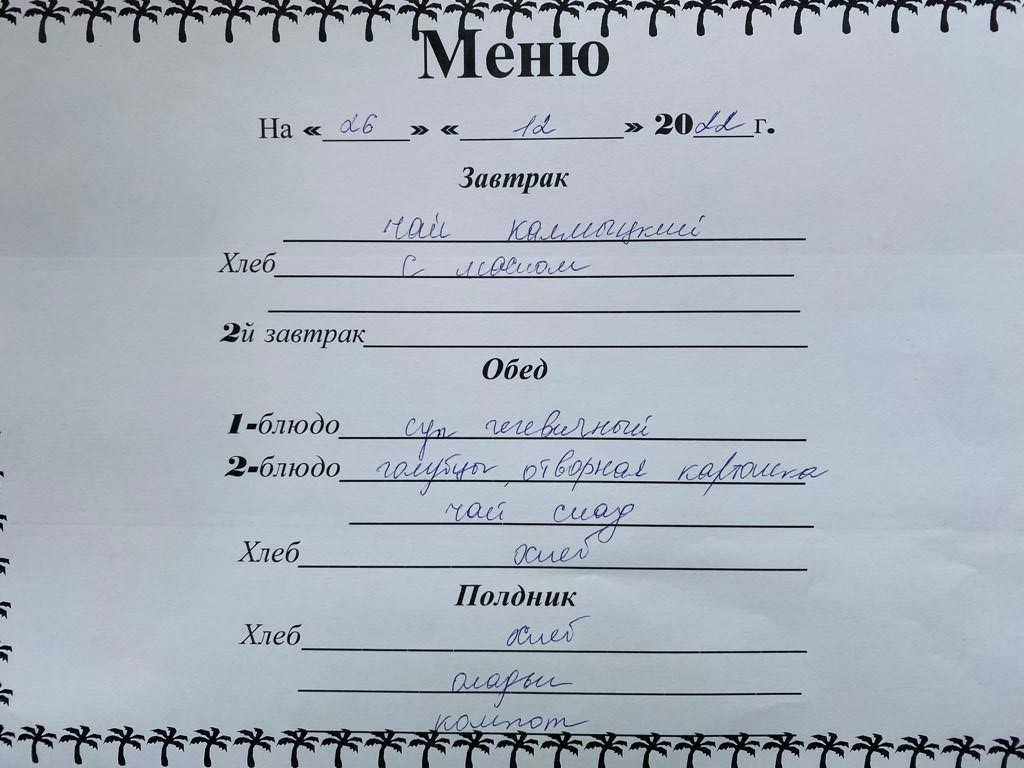 Меню
На « 26 » « 12 » 2022 г.
Завтрак
чай калмыцкий
Хлеб с маслом
2й завтрак
Обед
1-блюдо суп чечевичный
2-блюдо голубцы, отворная картошка
чай слад
Хлеб хлеб
Полдник
Хлеб хлеб
оладьи
компот